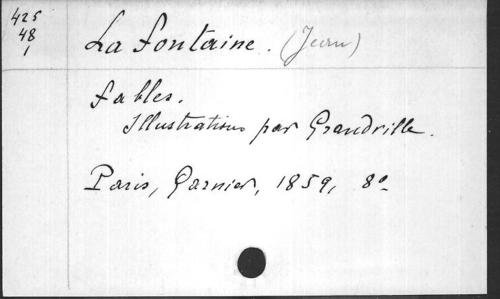 425
48
1
La Fontaine. (Jean)
Fables.
Illustrations par Grandville.
Paris, Garnier, 1859, 8°